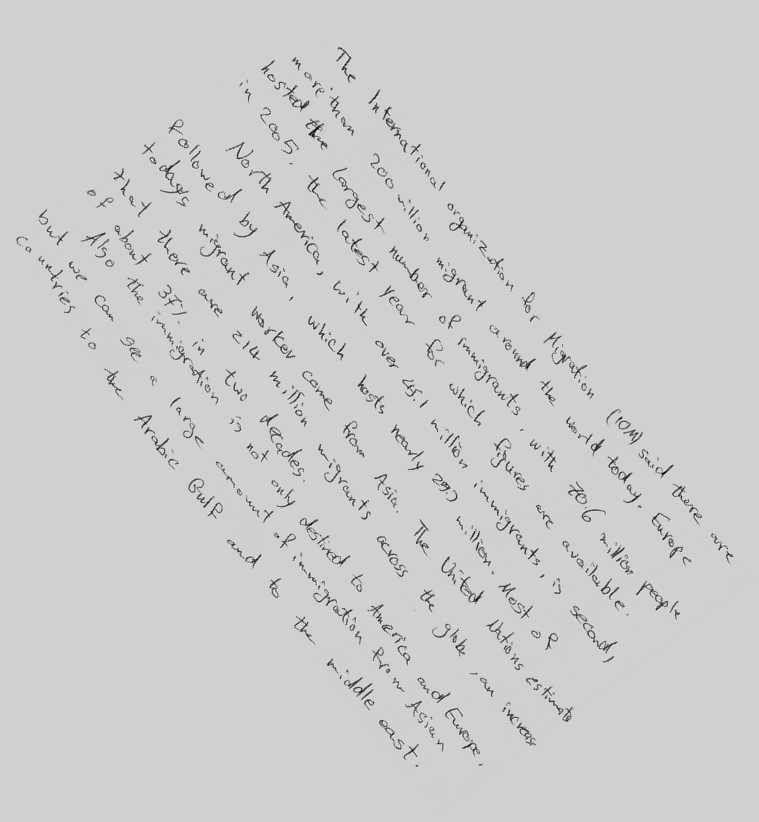 The International organization for Migration (IOM) said there are
more than 200 million migrant around the world today. Europe
hosted the largest number of immigrants, with 70.6 million people
in 2005. the latest year for which figures are available.
North America, with over 45.1 million immigrants, is second,
followed by Asia, which hosts nearly 25.3 million. Most of
todays migrant worker come from Asia. The United Nations estimate
that there are 214 million migrants across the globe, an increase
of about 37% in two decades.
Also the immigration is not only destined to America and Europe,
but we can see a large amount of immigration from Asian
countries to the Arabic Gulf and to the middle east.